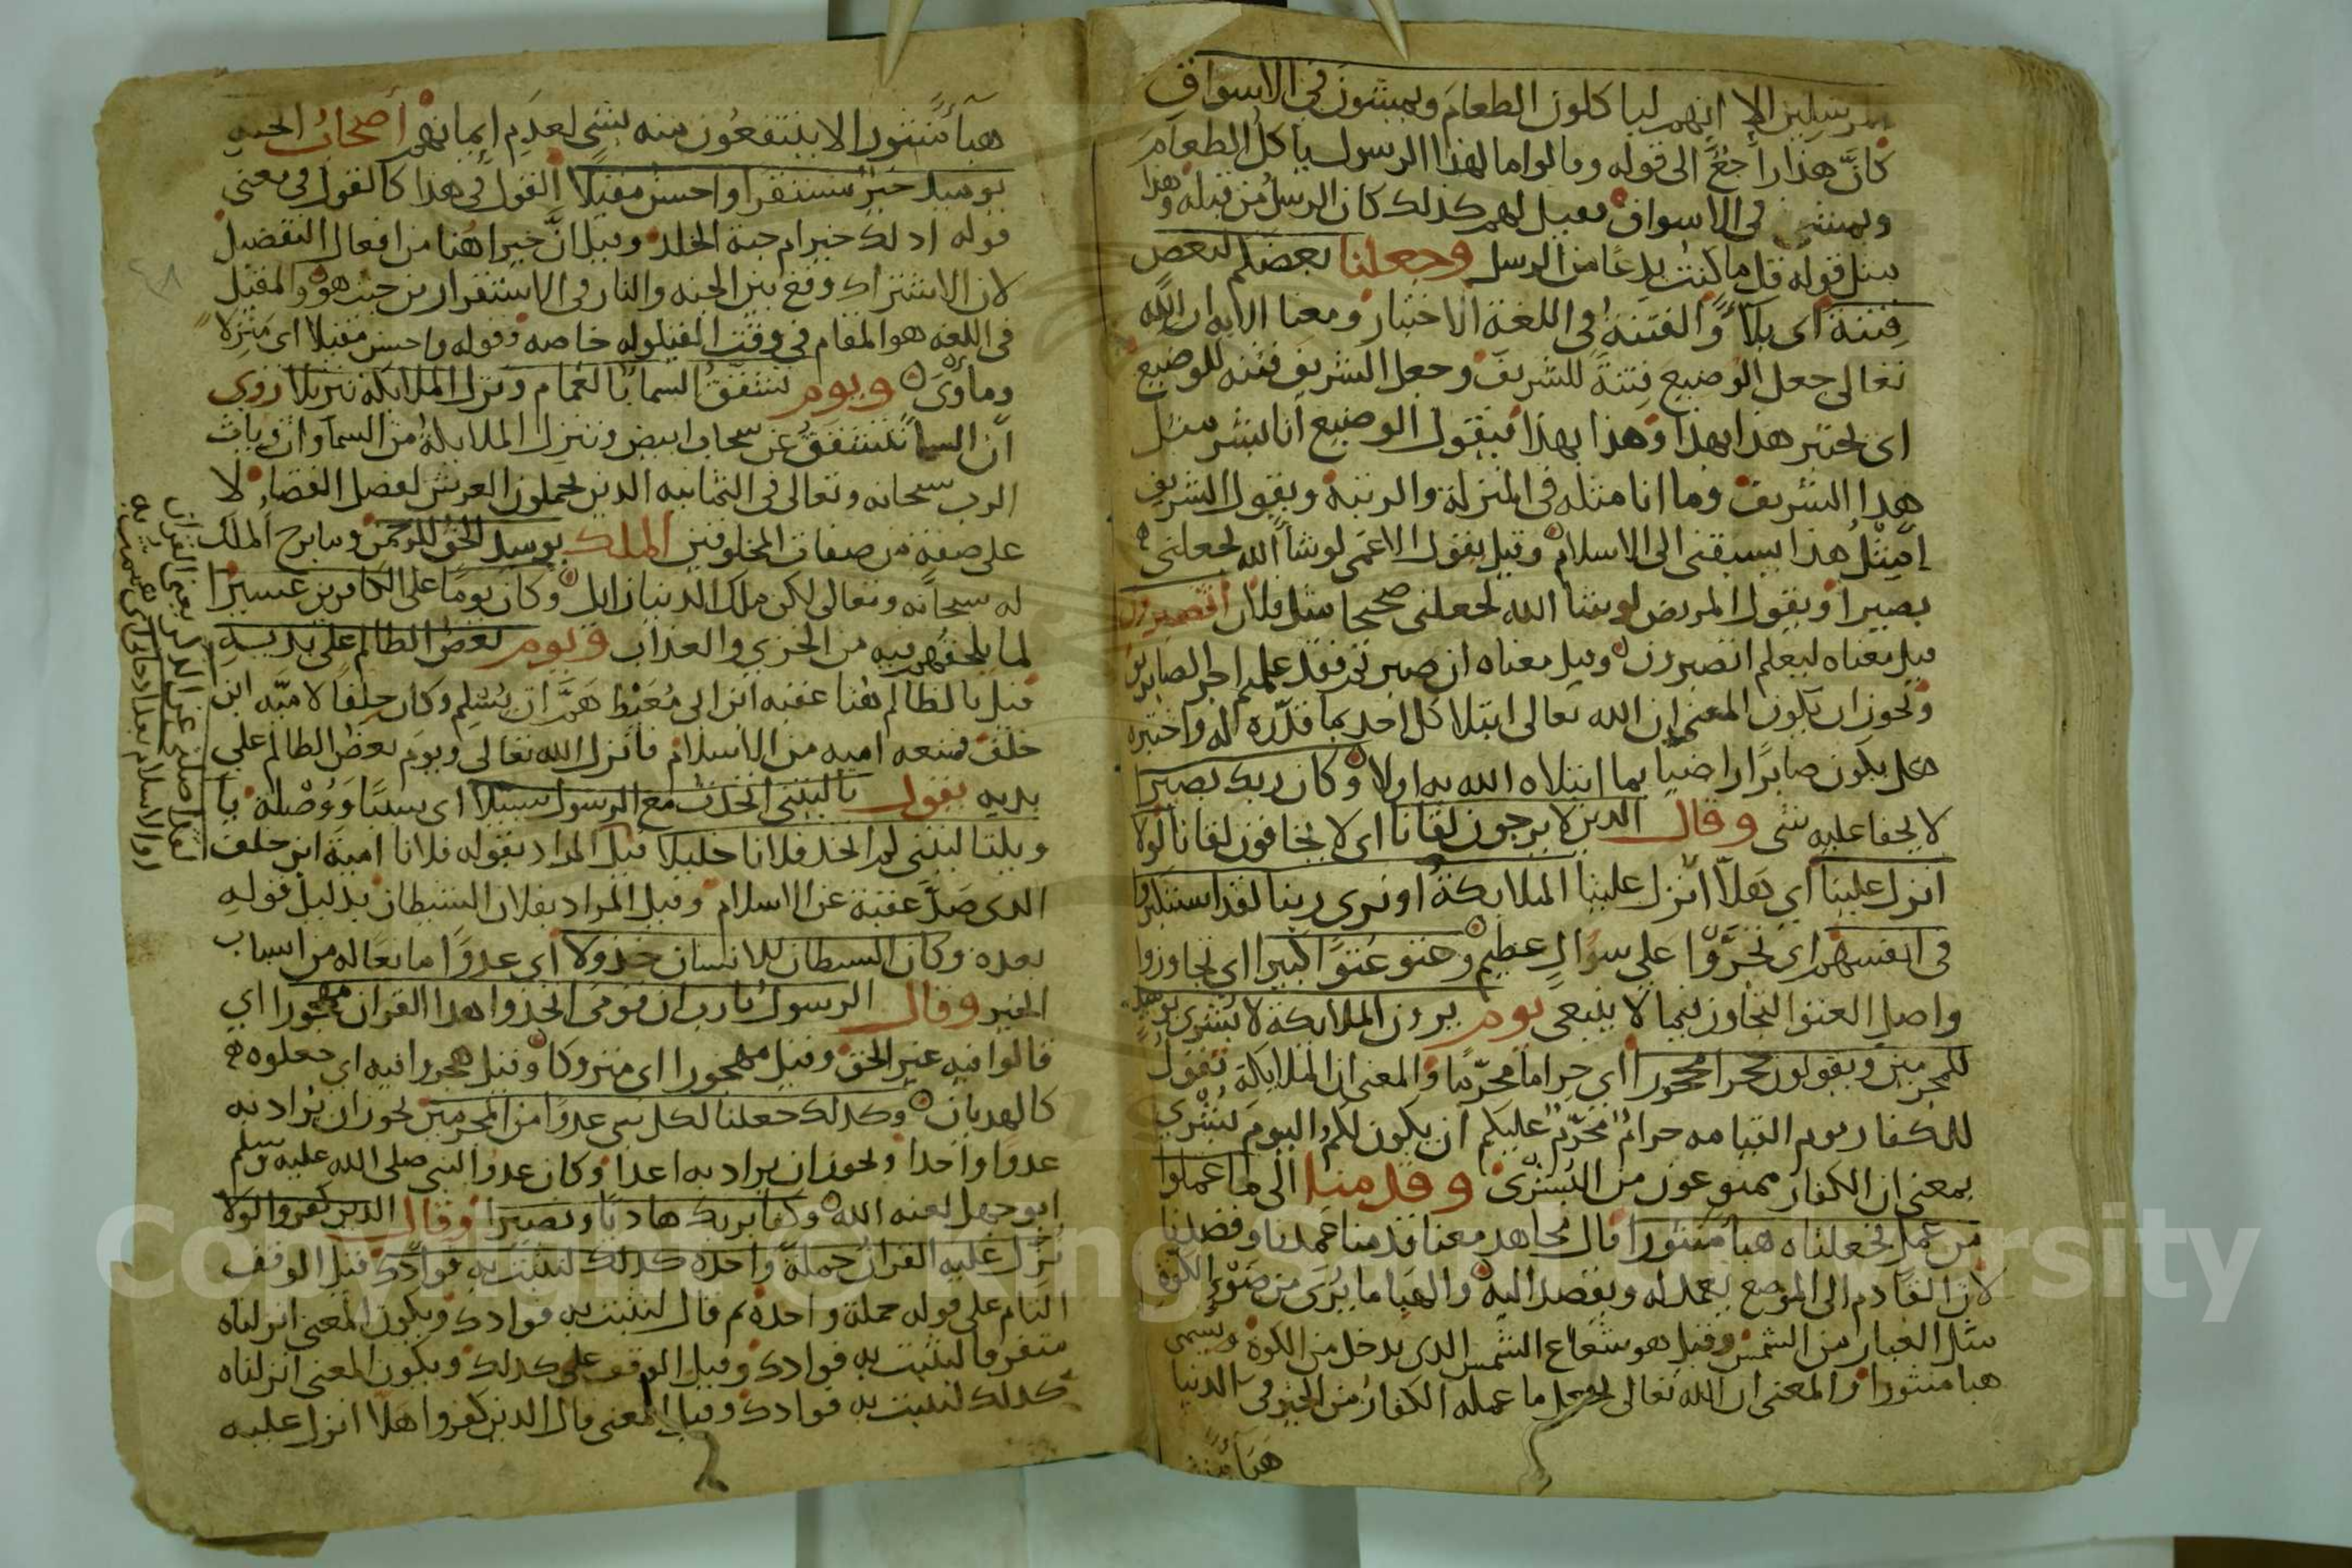 المرسلين الا انهم لياكلون الطعام ويمشون في الاسواق
كانّ هذا راجعٌ الى قوله وقالوا ما لهذا الرسول ياكل الطعام
ويمشي في الاسواق فقيل لهم كذلك كان الرسل من قبله وهذا
مثل قوله قل ما كنت بدعا من الرسل وجعلنا بعضكم لبعض
فتنة اى بلاً والفتنة في اللغة الاختبار ومعنا الايه ان الله
تعالى جعل الوضيع فتنة للشريف وجعل الشريف فتنه للوضيع
اى يختبر هذا بهذا وهذا بهذا فيقول الوضيع انا بشر مثل
هذا الشريف وما انا مثله في المنزلة والرتبة ويقول الشريف
امثل هذا يسبقني الى الاسلام وقيل يقول الاعمى لو شا الله لجعلني
بصيرا ويقول المريض لو شا الله لجعلني صحيحا مثل فلان اتصبرون
قيل معناه ليعلم اتصبرون وقيل معناه ان صبرتم فقد علمتم اجر الصابرين
ويجوز ان يكون المعنى ان الله تعالى ابتلا كل احد بما قدّره له واختبره
هل يكون صابرًا راضيا بما ابتلاه الله به اولا وكان ربك بصيرا
لا يخفا عليه شى وقال الذين لا يرجون لقانا اى لا يخافون لقانا لولا
انزل علينا اي هلّا انزل علينا الملايكة او نرى ربنا لقد استكبروا
في انفسهم اي تجرّوا على سوال عظيم وعتو عتوا كبيرا اى تجاوزوا
واصل العتو التجاوز فيما لا ينبغي يوم يرون الملايكة لا بشرى يوميذ
للمجرمين ويقولون حجرا محجورا اي حراما محرّما والمعنى ان الملايكة تقول
للكفار يوم القيامه حرامٌ محرّمٌ عليكم ان يكون لكم اليوم بشرى
بمعنى ان الكفار ممنوعون من البشرى وقدمنا الى ما عملوا
من عمل فجعلناه هبا منثورا قال مجاهد معنا قدمنا عمدنا وقصدنا
لان القادم الى الموضع يعمد له ويقصد اليه والهبا ما يُرَى من ضوء الكوة
مثل الغبار من الشمس وقيل هو شعاع الشمس الذى يدخل من الكوة ويسمى
هبا منثورا والمعنى ان الله تعالى يجعل ما عمله الكفار من الخير في الدنيا
هباً
هبآً منثورا لا ينتفعون منه بشى لعدم ايمانهم اصحاب الجنه
يوميذ خير مستقرا واحسن مقيلا القول في هذا كالقول في معنى
قوله اذلك خير ام جنة الخلد وقيل انّ خيرا هنا من افعال التفضيل
لان الاشتراك وقع بين الجنه والنار في الاستقرار من حيث هو والمقيل
في اللغه هو المقام في وقت القيلوله خاصه وقوله واحسن مقيلا اى منزلا
وماوًى ويوم تشقق السما بالغمام ونزل الملايكة تنزيلا روى
ان السما تتشقق عن سحاب ابيض وتنزل الملايكة من السماوات وياتي
الرب سبحانه وتعالى في الثمانيه الذين يحملون العرش لفصل القضا لا
على صفة من صفات المخلوقين الملك يوميذ الحق للرحمن وما برح الملك
له سبحانه وتعالى لكن ملك الدنيا زايل وكان يومًا على الكافرين عسيرا
لما يلحقهم فيه من الخزي والعذاب ويوم يعض الظالم على يديه
قيل بالظالم هنا عقبه ابن ابى مُعَيْط همَّ ان يُسْلِم وكان حِلفًا لاميّه ابن
خلف فمنعه اميه من الاسلام فانزل الله تعالى ويوم يعض الظالم على
يديه يقول يا ليتني اتخذت مع الرسول سبيلا اى سببًا وَوُصْلة يا
ويلتا ليتني لم اتخذ فلانا خليلا قيل المراد بقوله فلانا امية ابن خلف
الذى صَدَّ عقبة عن الاسلام وقيل المراد بفلان الشيطان بدليل قوله
بعده وكان الشيطان للانسان خذولا اي عدوًا مانعًا له من اسباب
الخير وقال الرسول يا رب ان قومى اتخذوا هذا القران مهجورا اي
قالوا فيه غير الحق وقيل مهجورا اى متروكا وقيل مهجورا فيه اي جعلوه
كالهديان وكذلك جعلنا لكل نبى عدوًا من المجرمين يجوز ان يُراد به
عدوًا واحدا ويجوز ان يراد به اعدا وكان عدو النبى صلى الله عليه وسلم
ابو جهل لعنه الله وكفا بربك هاديا ونصيرا وقال الذين كفروا لولا
نزل عليه القران جملةً واحده كذلك لنثبت به فوادك قيل الوقف
التام على قوله جملة واحدة ثم قال لنثبت به فوادك ويكون المعنى انزلناه
متفرقا لنثبت به فوادك وقيل الوقف على كذلك ويكون المعنى انزلناه
كذلك لنثبت به فوادك وقيل المعنى قال الذين كفروا هلّا انزل عليه
لقد اضلني عن الذكر يعني القران
او الاسلام بعد اذ جانى